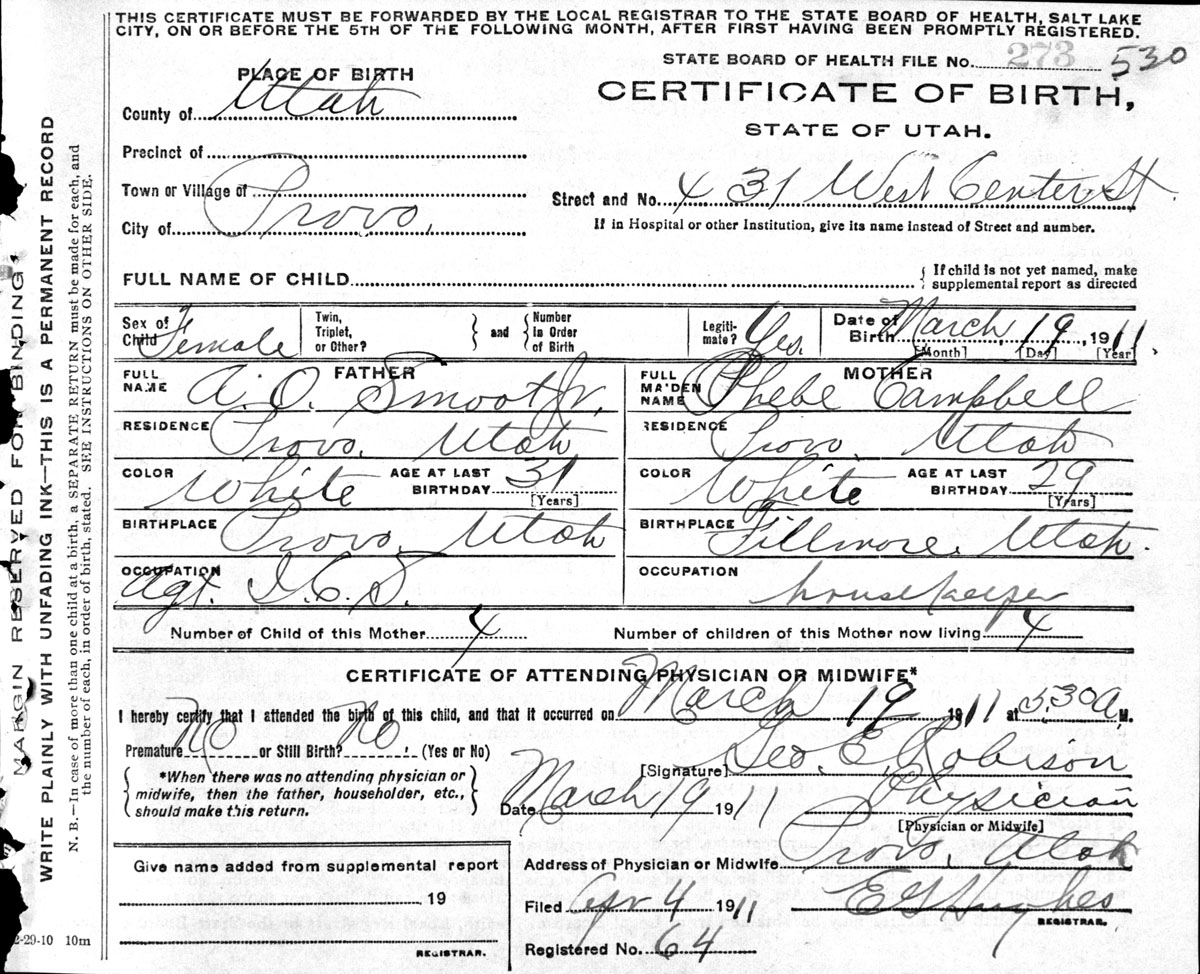 THIS CERTIFICATE MUST BE FORWARDED BY THE LOCAL REGISTRAR TO THE STATE BOARD OF HEALTH, SALT LAKE
CITY, ON OR BEFORE THE 5TH OF THE FOLLOWING MONTH, AFTER FIRST HAVING BEEN PROMPTLY REGISTERED.
STATE BOARD OF HEALTH FILE No. 273 530
PLACE OF BIRTH
CERTIFICATE OF BIRTH,
County of Utah
STATE OF UTAH.
Precinct of
Town or Village of
Street and No. 431 West Center St.
City of Provo,
If in Hospital or other Institution, give its name instead of Street and number.
FULL NAME OF CHILD
{ If child is not yet named, make
supplemental report as directed
Sex of Child Female
Twin, Triplet, or Other? } and { Number in Order of Birth
Legiti-mate? Yes.
Date of Birth March, 19, 1911.
[Month] [Day] [Year]
FATHER
FULL NAME A. O. Smoot Jr.
MOTHER
FULL MAIDEN NAME Phebe Campbell
RESIDENCE Provo, Utah
RESIDENCE Provo, Utah
COLOR White AGE AT LAST BIRTHDAY 31 [Years]
COLOR White AGE AT LAST BIRTHDAY 29 [Years]
BIRTHPLACE Provo, Utah
BIRTHPLACE Fillmore, Utah.
OCCUPATION Agt. I.C.S.
OCCUPATION housekeeper
Number of Child of this Mother 4 Number of children of this Mother now living 4
CERTIFICATE OF ATTENDING PHYSICIAN OR MIDWIFE*
I hereby certify that I attended the birth of this child, and that it occurred on March 19 1911 at 5:30 A M.
Premature No or Still Birth? No. (Yes or No)
[Signature] Geo. E. Robison
{ *When there was no attending physician or
midwife, then the father, householder, etc.,
should make this return. }
Date March 19 1911 Physician
[Physician or Midwife]
Address of Physician or Midwife Provo, Utah
Give name added from supplemental report
19
REGISTRAR.
Filed Apr 4 1911 E G Hughes
REGISTRAR.
Registered No. 64
2-29-10 10m
MARGIN RESERVED FOR BINDING.
WRITE PLAINLY WITH UNFADING INK—THIS IS A PERMANENT RECORD
N. B.—In case of more than one child at a birth, a SEPARATE RETURN must be made for each, and
the number of each, in order of birth, stated. SEE INSTRUCTIONS ON OTHER SIDE.